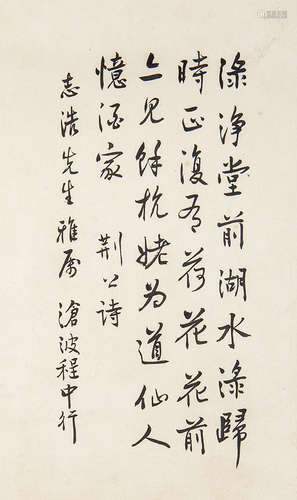 淥淨堂前湖水淥歸
時正復有荷花花前
亦見餘杭姥為道仙人
憶酒家 荆公詩
志浩先生雅屬 滄波程中行